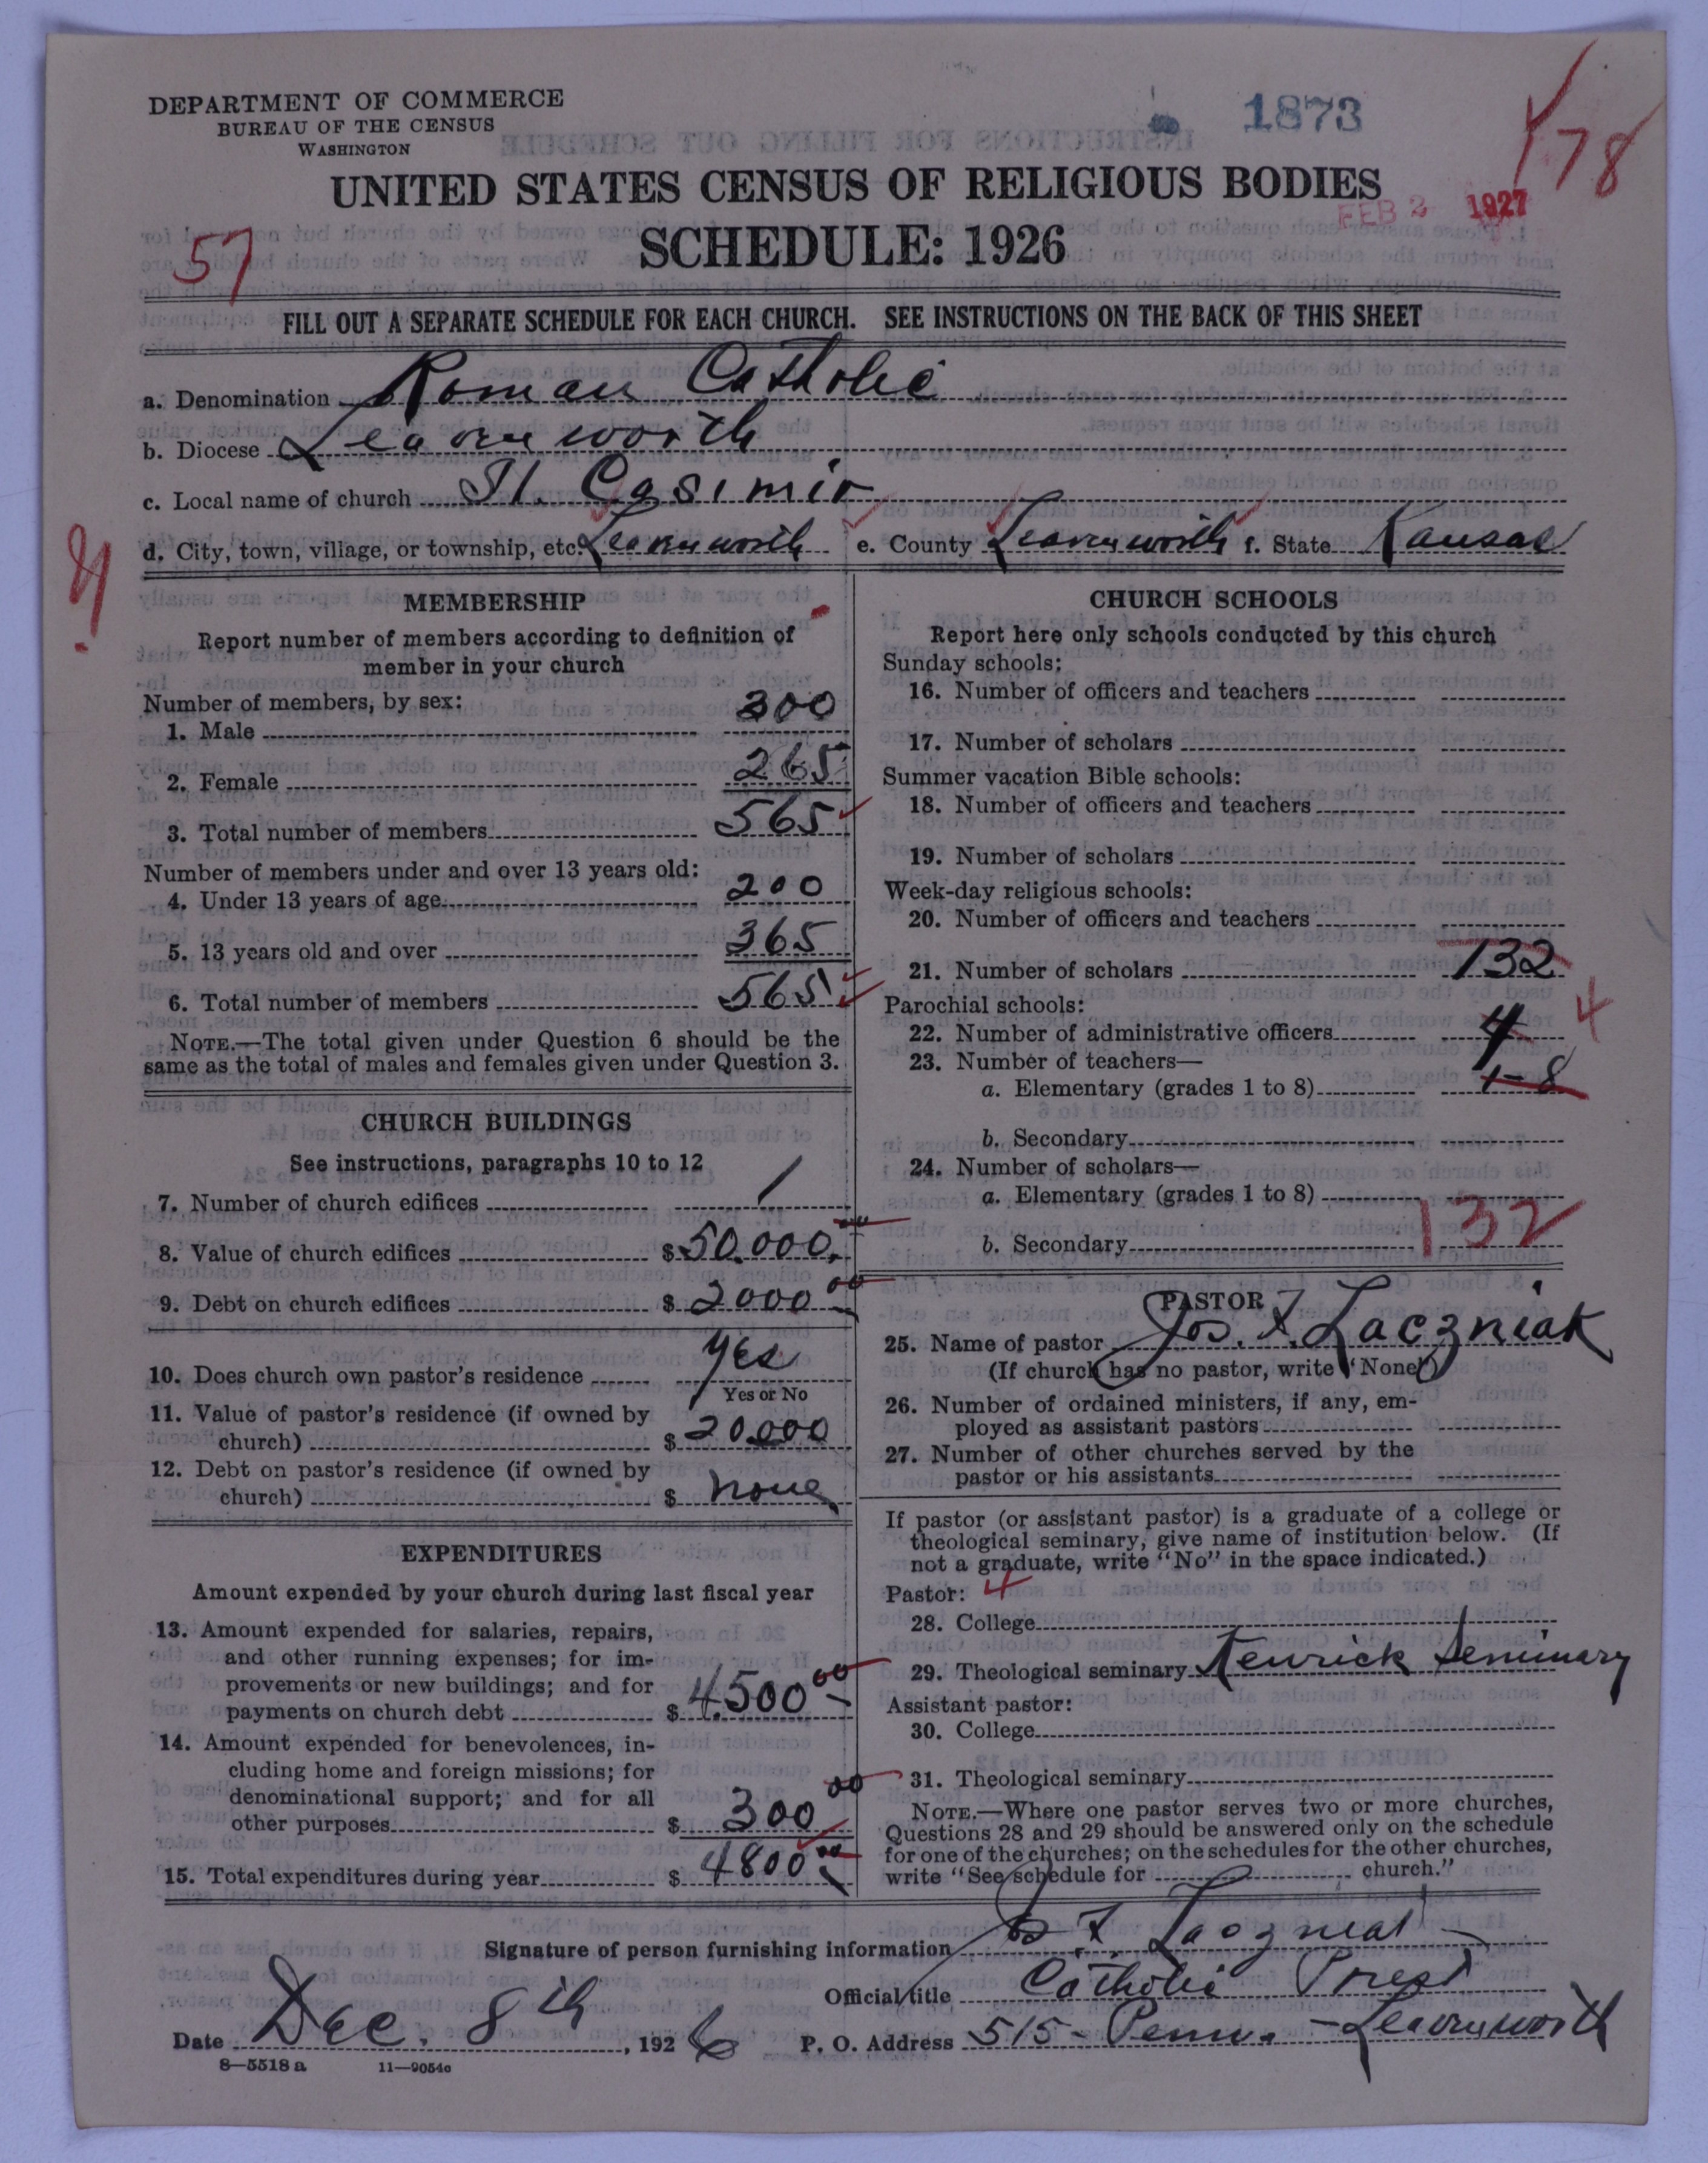 DEPARTMENT OF COMMERCE
BUREAU OF THE CENSUS
WASHINGTON
1873
178
UNITED STATES CENSUS OF RELIGIOUS BODIES
FEB 2 1927
SCHEDULE: 1926
57
FILL OUT A SEPARATE SCHEDULE FOR EACH CHURCH. SEE INSTRUCTIONS ON THE BACK OF THIS SHEET
a. Denomination Roman Catholic
b. Diocese Leavenworth
c. Local name of church St. Casimir
d. City, town, village, or township, etc. Leavenworth e. County Leavenworth f. State Kansas
MEMBERSHIP
Report number of members according to definition of
member in your church
Number of members, by sex:
1. Male 300
2. Female 265
3. Total number of members 565
Number of members under and over 13 years old:
4. Under 13 years of age 200
5. 13 years old and over 365
6. Total number of members 565
NOTE.—The total given under Question 6 should be the
same as the total of males and females given under Question 3.
CHURCH BUILDINGS
See instructions, paragraphs 10 to 12
7. Number of church edifices 1
8. Value of church edifices $ 50.000.00
9. Debt on church edifices $ 2000 00
10. Does church own pastor's residence yes
Yes or No
11. Value of pastor's residence (if owned by
church) $ 20.000
12. Debt on pastor's residence (if owned by
church) $ none
EXPENDITURES
Amount expended by your church during last fiscal year
13. Amount expended for salaries, repairs,
and other running expenses; for im-
provements or new buildings; and for
payments on church debt $ 4.500 00
14. Amount expended for benevolences, in-
cluding home and foreign missions; for
denominational support; and for all
other purposes $ 300 00
15. Total expenditures during year $ 4800 00
CHURCH SCHOOLS
Report here only schools conducted by this church
Sunday schools:
16. Number of officers and teachers
17. Number of scholars
Summer vacation Bible schools:
18. Number of officers and teachers
19. Number of scholars
Week-day religious schools:
20. Number of officers and teachers
21. Number of scholars 132
Parochial schools:
22. Number of administrative officers 4 4
23. Number of teachers—
a. Elementary (grades 1 to 8) 1-8
b. Secondary
24. Number of scholars—
a. Elementary (grades 1 to 8) 132
b. Secondary
PASTOR
25. Name of pastor Jos. F. Laczniak
(If church has no pastor, write "None")
26. Number of ordained ministers, if any, em-
ployed as assistant pastors
27. Number of other churches served by the
pastor or his assistants
If pastor (or assistant pastor) is a graduate of a college or
theological seminary, give name of institution below. (If
not a graduate, write "No" in the space indicated.)
Pastor: 4
28. College
29. Theological seminary Kenrick Seminary
Assistant pastor:
30. College
31. Theological seminary
NOTE.—Where one pastor serves two or more churches,
Questions 28 and 29 should be answered only on the schedule
for one of the churches; on the schedules for the other churches,
write "See schedule for church."
Signature of person furnishing information Jos. F. Laczniak
Official title Catholic Priest
Date Dec. 8th, 1926 P. O. Address 515 - Penn. - Leavenworth
8—5518 a 11—9054c